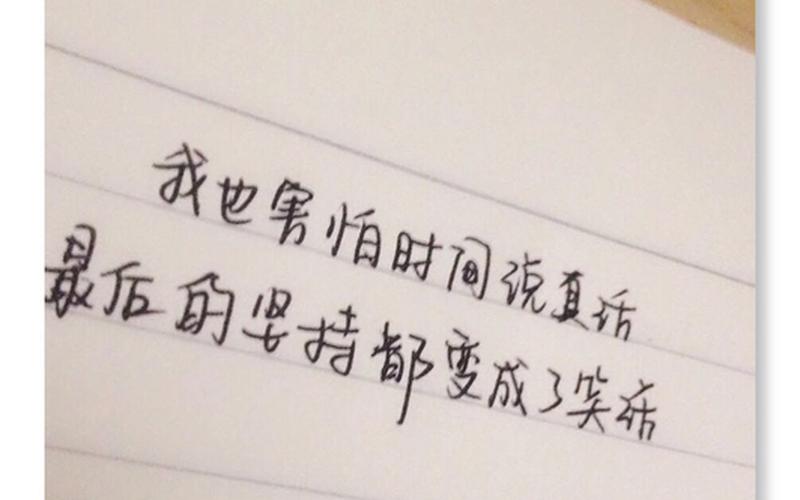 我也害怕时间说真话
最后的坚持都变成了笑话